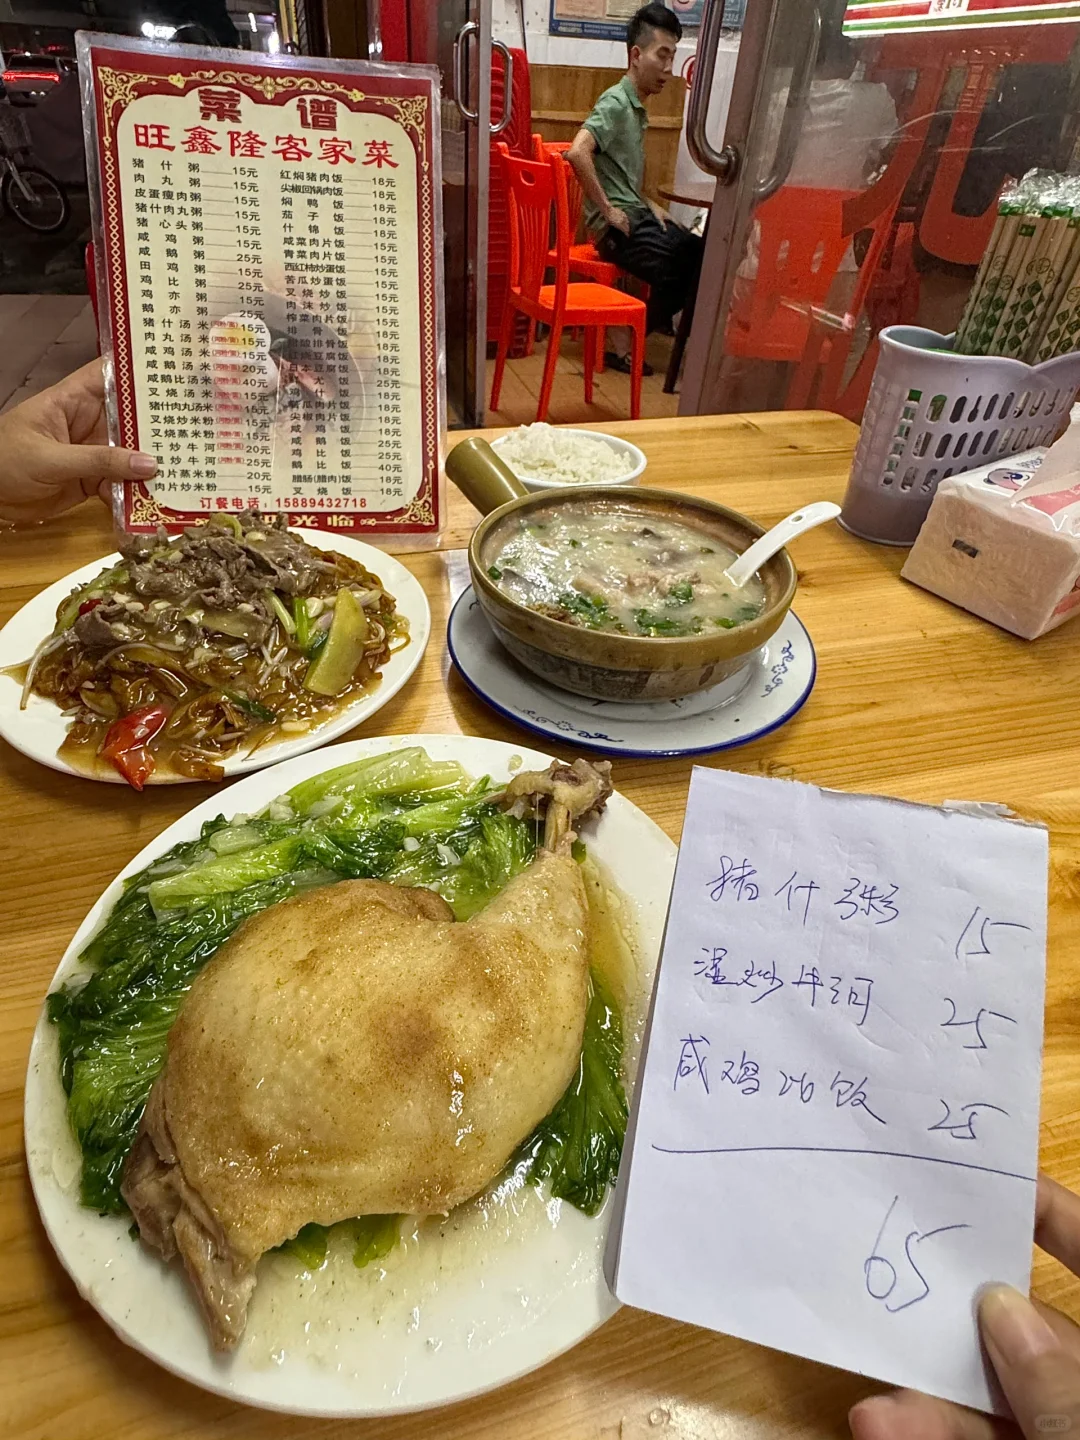 菜谱
旺鑫隆客家菜
猪什粥 15元
肉丸粥 15元
皮蛋瘦肉粥 15元
猪什肉丸粥 15元
猪心头粥 15元
咸鸡粥 15元
咸鹅粥 25元
田鸡粥 15元
鸡比粥 25元
鸡亦粥 15元
鹅亦粥 15元
猪什汤米 15元
肉丸汤米 15元
咸鸡汤米 15元
咸鹅汤米 20元
咸鹅比汤米 40元
叉烧汤米 15元
猪什肉丸汤米 15元
叉烧炒米粉 15元
叉烧蒸米粉 15元
干炒牛河 20元
湿炒牛河 25元
肉片蒸米粉 20元
肉片炒米粉 15元
红焖猪肉饭 18元
尖椒回锅肉饭 18元
焖鸭饭 18元
茄子饭 18元
什锦饭 18元
咸菜肉片饭 15元
青菜肉片饭 15元
西红柿炒蛋饭 15元
苦瓜炒蛋饭 15元
叉烧炒饭 15元
肉沫炒饭 15元
榨菜肉片饭 15元
排骨饭 18元
酸排骨饭 18元
烧豆腐饭 18元
日本豆腐饭 18元
鱿饭 25元
鸡什饭 18元
瓜肉片饭 18元
尖椒肉片饭 18元
咸鸡饭 18元
咸鹅饭 25元
鸡比饭 25元
鹅比饭 40元
腊肠(腊肉)饭 18元
叉烧饭 18元
订餐电话：15889432718
光临
猪什粥 15
湿炒牛河 25
咸鸡比饭 25
65
小红书